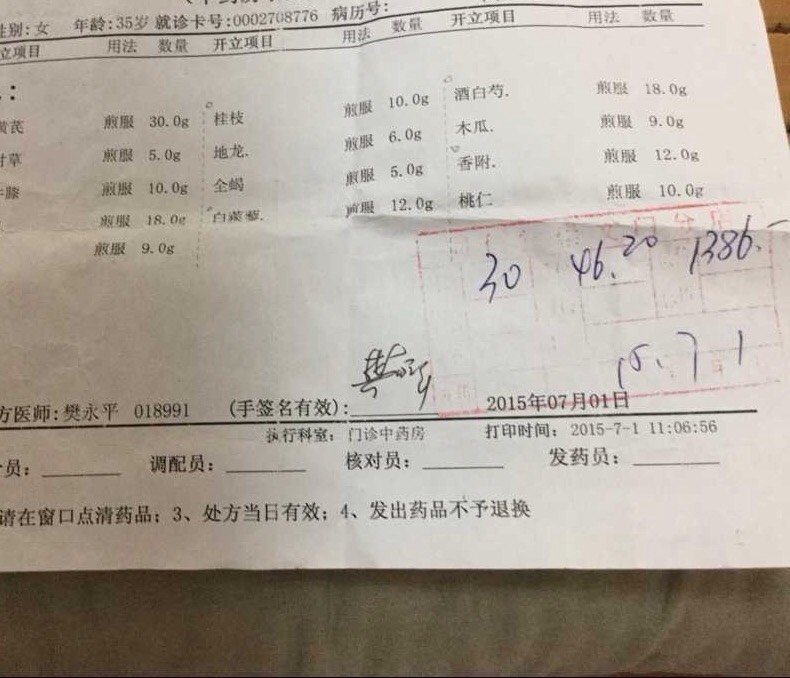 性别:女 年龄:35岁 就诊卡号:0002708776 病历号:
立项目 用法 数量 开立项目 用法 数量 开立项目 用法 数量
:
黄芪 煎服 30.0g 桂枝 煎服 10.0g 酒白芍. 煎服 18.0g
甘草 煎服 5.0g 地龙. 煎服 6.0g 木瓜. 煎服 9.0g
牛膝 煎服 10.0g 全蝎 煎服 5.0g 香附. 煎服 12.0g
煎服 18.0g 白蒺藜. 煎服 12.0g 桃仁 煎服 10.0g
煎服 9.0g
30 46.20 1386.-
15.7 1
方医师:樊永平 018991 (手签名有效): 2015年07月01日
执行科室: 门诊中药房 打印时间: 2015-7-1 11:06:56
员: 调配员: 核对员: 发药员:
请在窗口点清药品; 3、处方当日有效; 4、发出药品不予退换